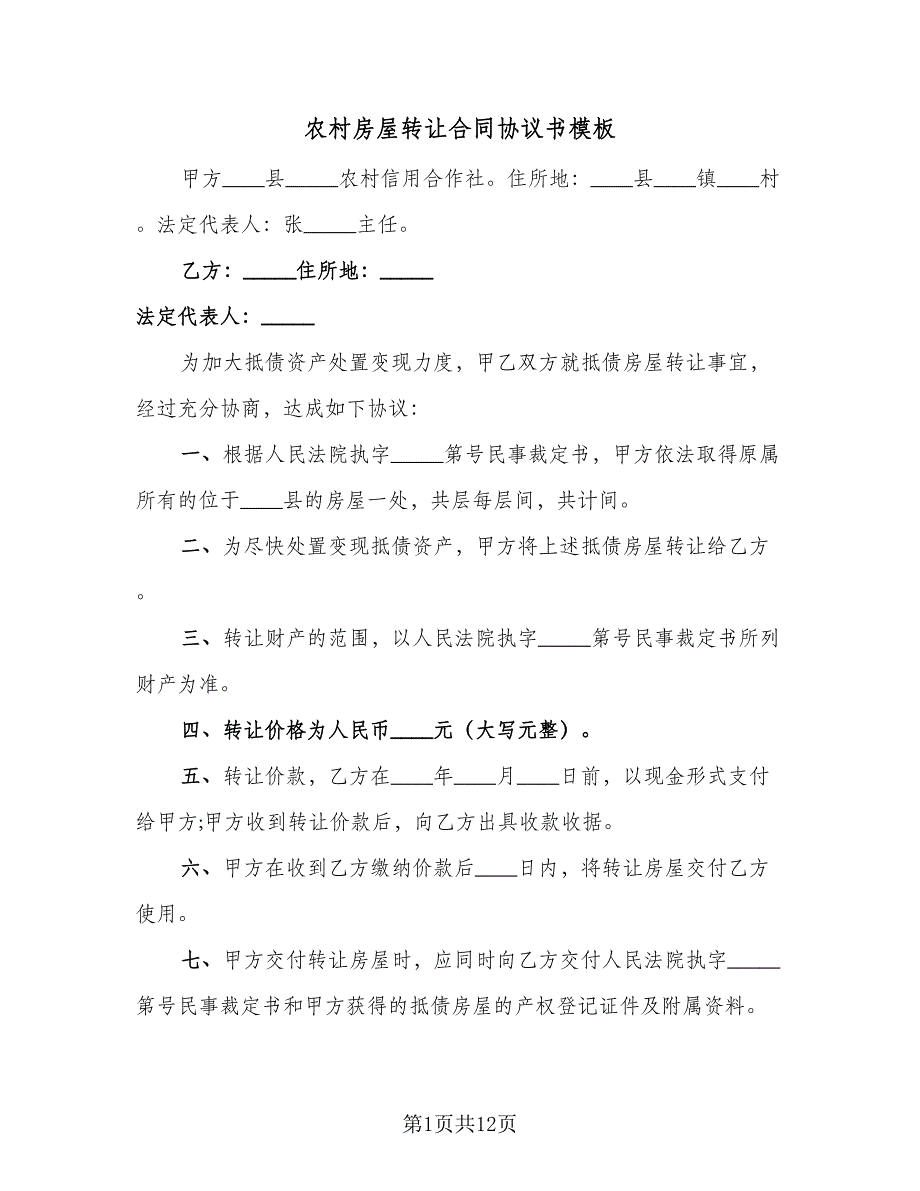 农村房屋转让合同协议书模板
甲方____县_____农村信用合作社。住所地：____县____镇____村
。法定代表人：张_____主任。
乙方：_____住所地：_____
法定代表人：_____
为加大抵债资产处置变现力度，甲乙双方就抵债房屋转让事宜，
经过充分协商，达成如下协议：
一、根据人民法院执字_____第号民事裁定书，甲方依法取得原属
所有的位于____县的房屋一处，共层每层间，共计间。
二、为尽快处置变现抵债资产，甲方将上述抵债房屋转让给乙方
。
三、转让财产的范围，以人民法院执字_____第号民事裁定书所列
财产为准。
四、转让价格为人民币____元（大写元整）。
五、转让价款，乙方在____年____月____日前，以现金形式支付
给甲方;甲方收到转让价款后，向乙方出具收款收据。
六、甲方在收到乙方缴纳价款后____日内，将转让房屋交付乙方
使用。
七、甲方交付转让房屋时，应同时向乙方交付人民法院执字_____
第号民事裁定书和甲方获得的抵债房屋的产权登记证件及附属资料。
第1页共12页